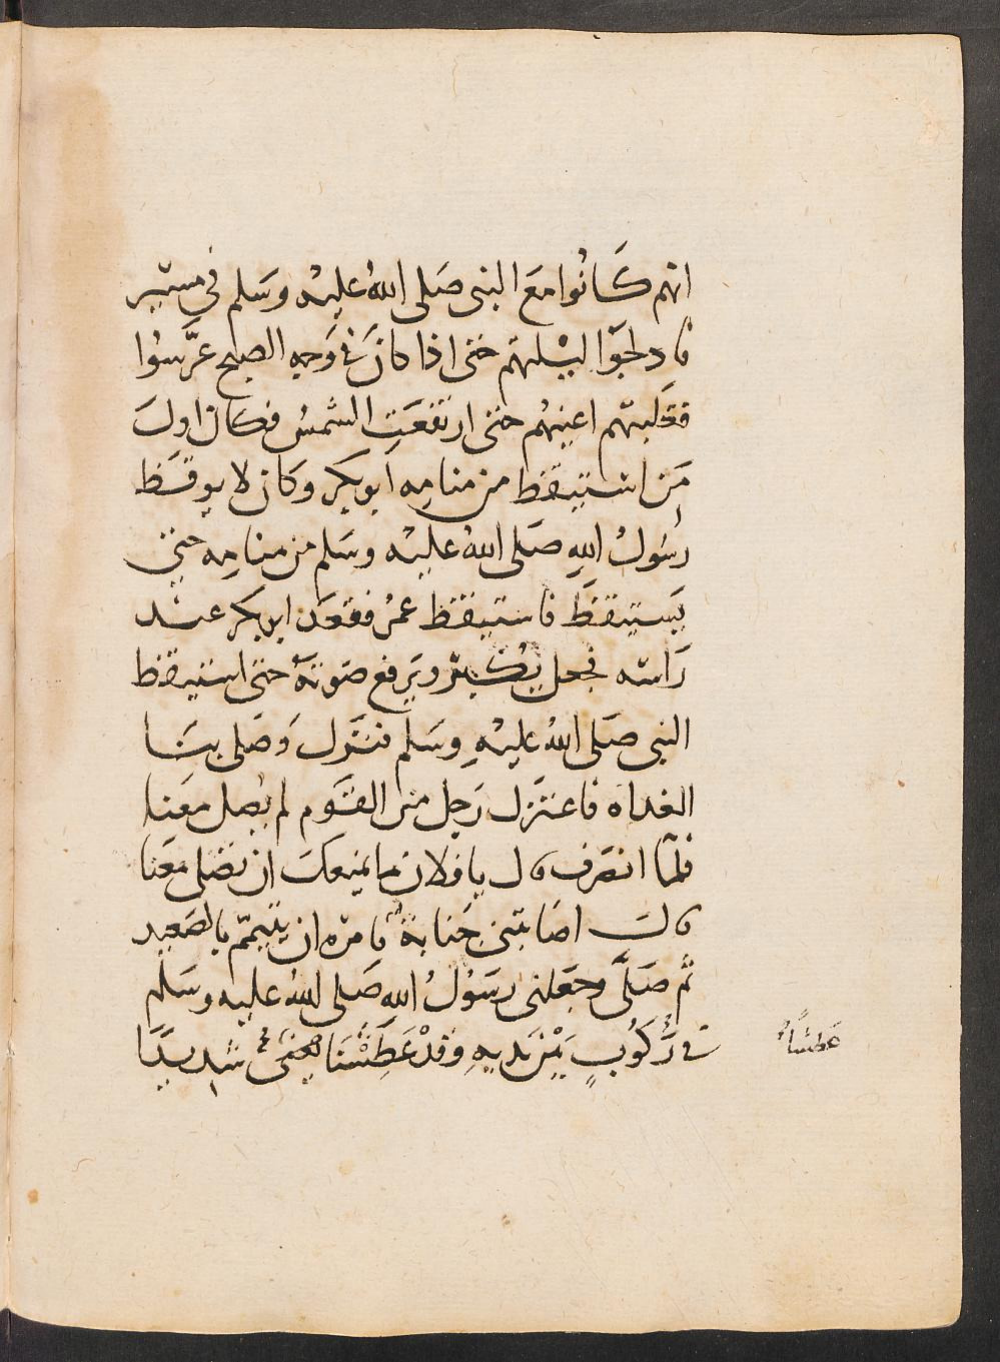 انهم كَانُوا مَعَ النبى صَلى اللهُ عليْه وسَلم فى مسير
فادلجَوا ليْلتهم حتى اذا كانَ فى وَجه الصبح عرَّسُوا
فغَلبتهم اعينُهم حتى ارتفعَتِ الشمسُ فكان اولَ
مَن استيقظ من منامِه ابو بكر وكان لا يوقَظ
رسُولُ اللهِ صَلى اللهُ عليْه وسَلم من منامِه حتى
يَستيقظَ فاستيقظ عمرُ فقعَد ابو بكر عند
رَاسه فجعل يُكبّر ويَرفع صَوتهُ حتى استيقظ
النبى صَلى اللهُ عليْهِ وسَلم فنَزل وَصَلى بنَا
الغداه فاعتَزل رَجل من القَوم لم يُصل معَنا
فلمّا انصَرف قال يا فلان ما يمنعكَ ان تصَلى معَنا
قالَ اصَابتنى جَنابةٌ فامره ان يتيَمّم بالصَعيد
ثم صَلَّى وجَعَلنى رسَوُلُ اللهِ صَلى اللهُ عليه وسَلم
فى رَكُوبٍ بَيْن يديهِ وَقدْ عَطِشْنَا شديدًا
عَطشًا